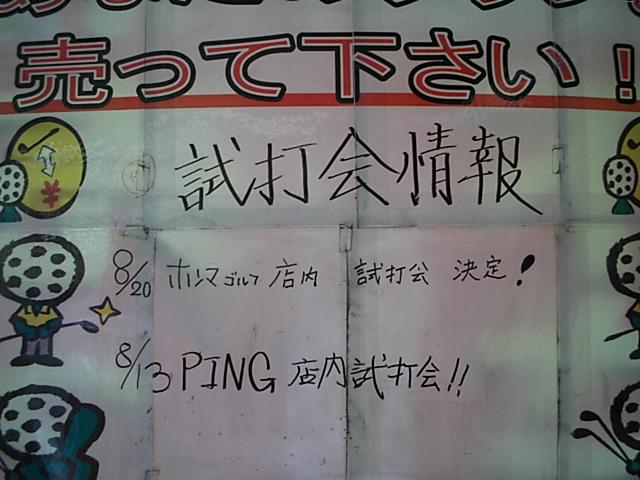 売って下さい!
試打会情報
8/20 ホンマゴルフ 店内 試打会 決定!
8/13 PING 店内試打会!!